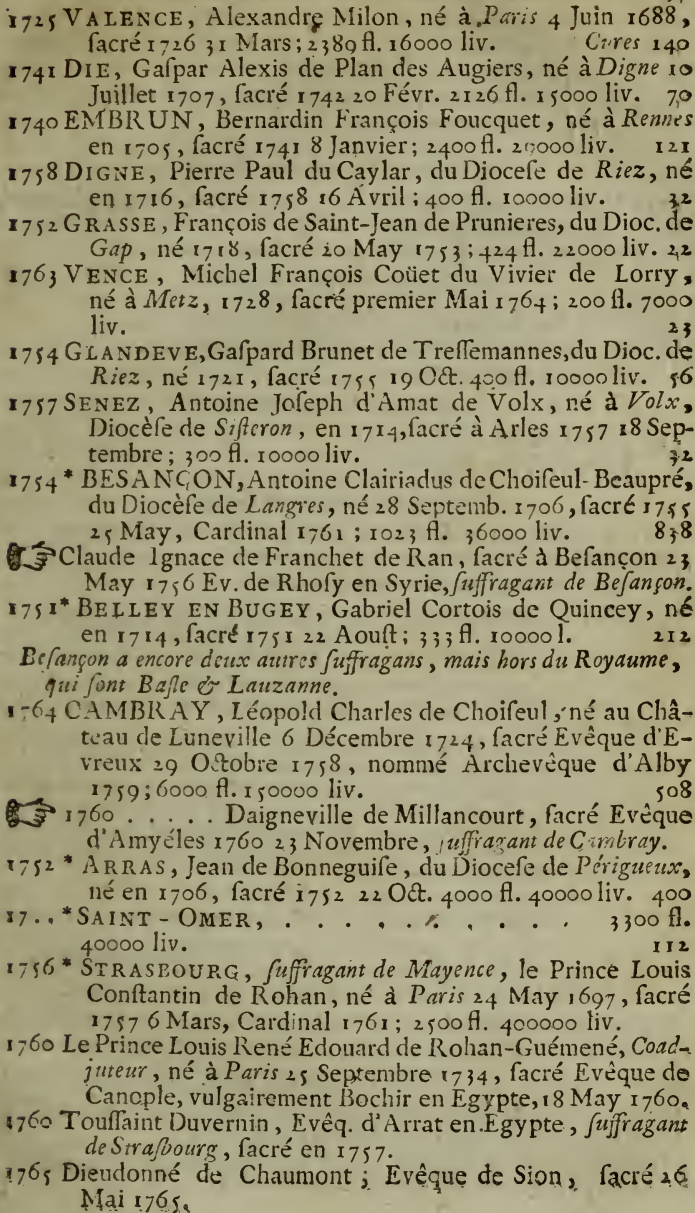 1725 VALENCE, Alexandre Milon, né à Paris 4 Juin 1688,
ſacré 1726 31 Mars; 2389 fl. 16000 liv. Cures 140
1741 DIE, Gaſpar Alexis de Plan des Augiers, né à Digne 10
Juillet 1707, ſacré 1742 20 Févr. 2126 fl. 15000 liv. 70
1740 EMBRUN, Bernardin François Foucquet, né à Rennes
en 1705, ſacré 1741 8 Janvier; 2400 fl. 20000 liv. 121
1758 DIGNE, Pierre Paul du Caylar, du Dioceſe de Riez, né
en 1716, ſacré 1758 16 Avril; 400 fl. 10000 liv. 32
1752 GRASSE, François de Saint-Jean de Prunieres, du Dioc. de
Gap, né 1718, ſacré 20 May 1753; 424 fl. 22000 liv. 22
1763 VENCE, Michel François Coüet du Vivier de Lorry,
né à Metz, 1728, ſacré premier Mai 1764; 200 fl. 7000
liv. 23
1754 GLANDEVE, Gaſpard Brunet de Treſſemannes, du Dioc. de
Riez, né 1721, ſacré 1755 19 Oct. 400 fl. 10000 liv. 56
1757 SENEZ, Antoine Joſeph d'Amat de Volx, né à Volx,
Diocèſe de Siſteron, en 1714, ſacré à Arles 1757 18 Sep-
tembre; 300 fl. 10000 liv. 32
1754 * BESANÇON, Antoine Clairiadus de Choiſeul-Beaupré,
du Diocèſe de Langres, né 28 Septemb. 1706, ſacré 1755
25 May, Cardinal 1761; 1023 fl. 36000 liv. 838
☞ Claude Ignace de Franchet de Ran, ſacré à Beſançon 23
May 1756 Ev. de Rhoſy en Syrie, ſuffragant de Beſançon.
1751 * BELLEY EN BUGEY, Gabriel Cortois de Quincey, né
en 1714, ſacré 1751 22 Aouſt; 333 fl. 10000 l. 212
Beſançon a encore deux autres ſuffragans, mais hors du Royaume,
qui ſont Baſle & Lauzanne.
1764 CAMBRAY, Léopold Charles de Choiſeul, né au Châ-
teau de Luneville 6 Décembre 1724, ſacré Evêque d'E-
vreux 29 Octobre 1758, nommé Archevêque d'Alby
1759; 6000 fl. 150000 liv. 508
☞ 1760 . . . . . Daigneville de Millancourt, ſacré Evêque
d'Amyéles 1760 23 Novembre, ſuffragant de Cambray.
1752 * ARRAS, Jean de Bonneguiſe, du Dioceſe de Périgueux,
né en 1706, ſacré 1752 22 Oct. 4000 fl. 40000 liv. 400
17.. * SAINT-OMER, . . . . . . . . 3300 fl.
40000 liv. 112
1756 * STRASBOURG, ſuffragant de Mayence, le Prince Louis
Conſtantin de Rohan, né à Paris 24 May 1697, ſacré
1757 6 Mars, Cardinal 1761; 2500 fl. 400000 liv.
1760 Le Prince Louis René Edouard de Rohan-Guémené, Coad-
juteur, né à Paris 25 Septembre 1734, ſacré Evêque de
Canople, vulgairement Bochir en Egypte, 18 May 1760.
1760 Touſſaint Duvernin, Evêq. d'Arrat en Egypte, ſuffragant
de Straſbourg, ſacré en 1757.
1765 Dieudonné de Chaumont; Evêque de Sion, ſacré 26
Mai 1765,